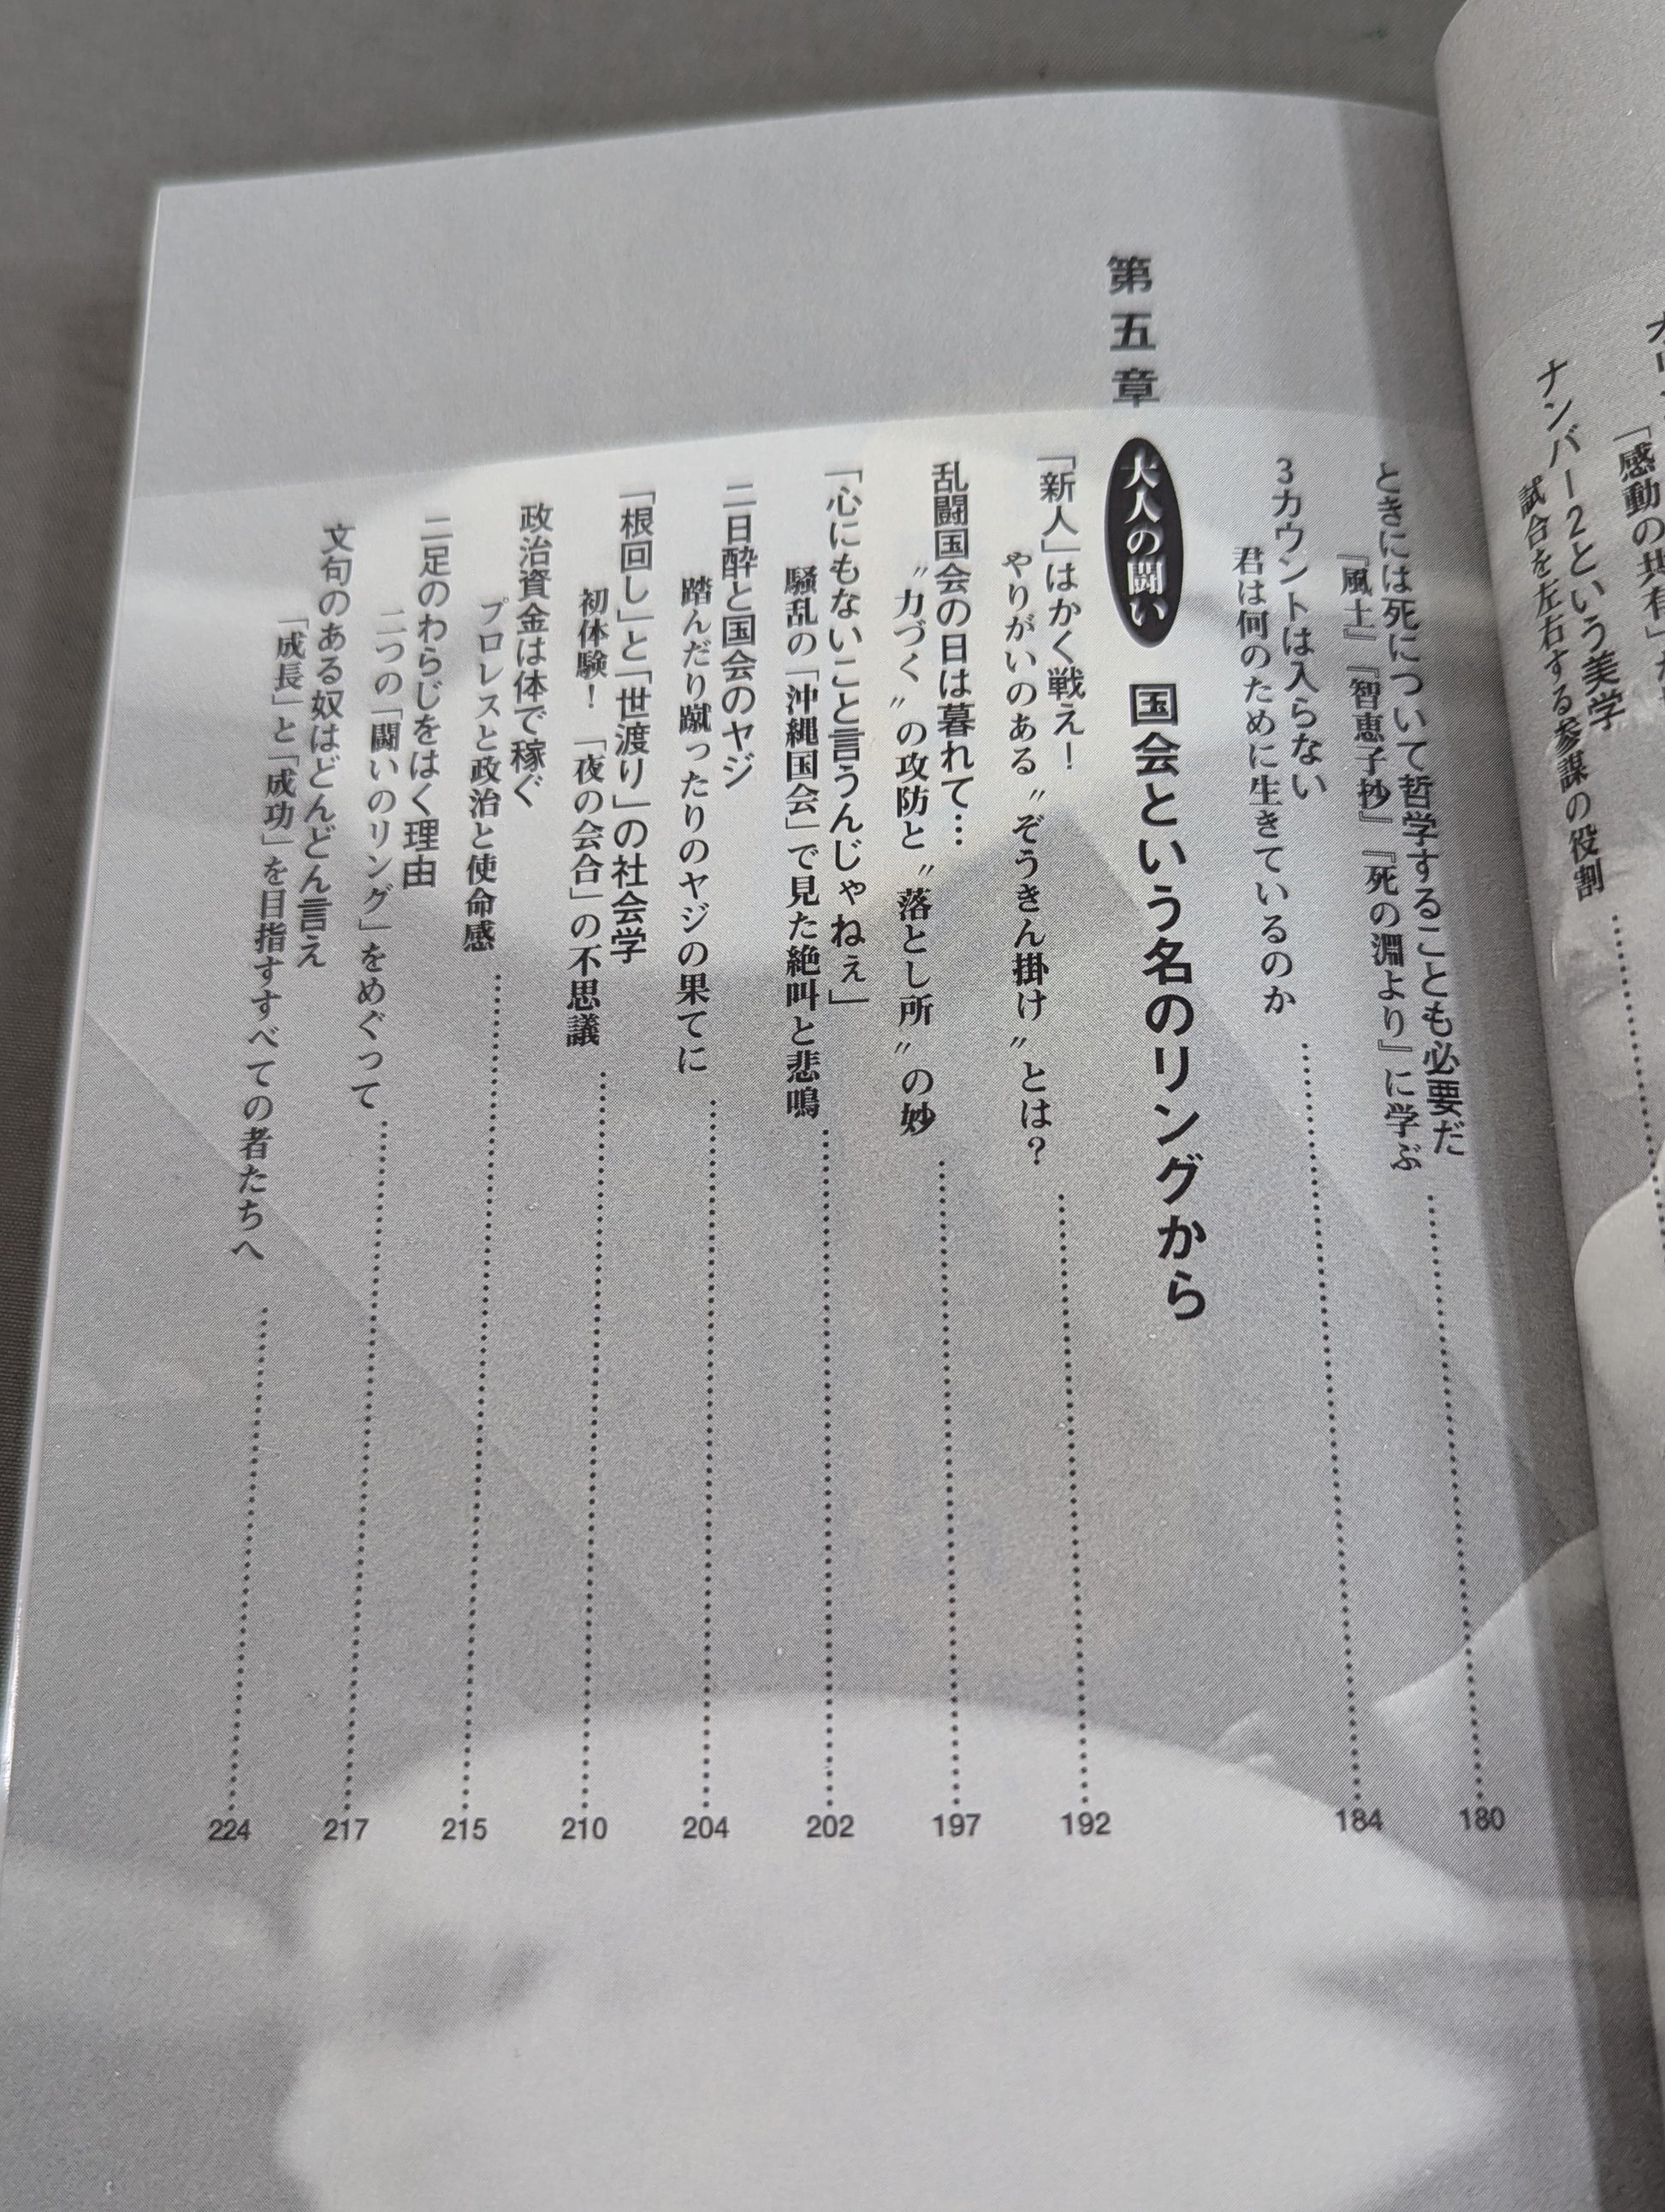 「感動の共有」
ナンバー2という美学
試合を左右する参謀の役割
ときには死について哲学することも必要だ
『風土』『智恵子抄』『死の淵より』に学ぶ
180
3カウントは入らない
君は何のために生きているのか
184
第五章
大人の闘い
国会という名のリングから
「新人」はかく戦え!
やりがいのある〝ぞうきん掛け〟とは?
192
乱闘国会の日は暮れて…
〝力づく〟の攻防と〝落とし所〟の妙
197
「心にもないこと言うんじゃねぇ」
騒乱の「沖縄国会」で見た絶叫と悲鳴
202
二日酔と国会のヤジ
踏んだり蹴ったりのヤジの果てに
204
「根回し」と「世渡り」の社会学
初体験!「夜の会合」の不思議
210
政治資金は体で稼ぐ
プロレスと政治と使命感
215
二足のわらじをはく理由
二つの「闘いのリング」をめぐって
217
文句のある奴はどんどん言え
「成長」と「成功」を目指すすべての者たちへ
224